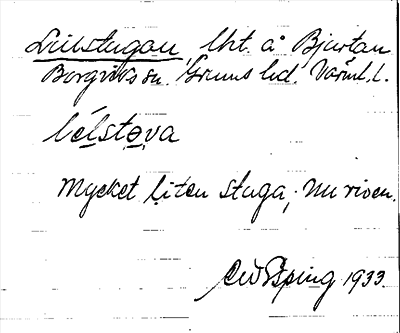 Lillstugan, lht. å Bjurtan
Borgviks sn. Grums hd. Värml. l.
lélstova
Mycket liten stuga; nu riven.
1933.